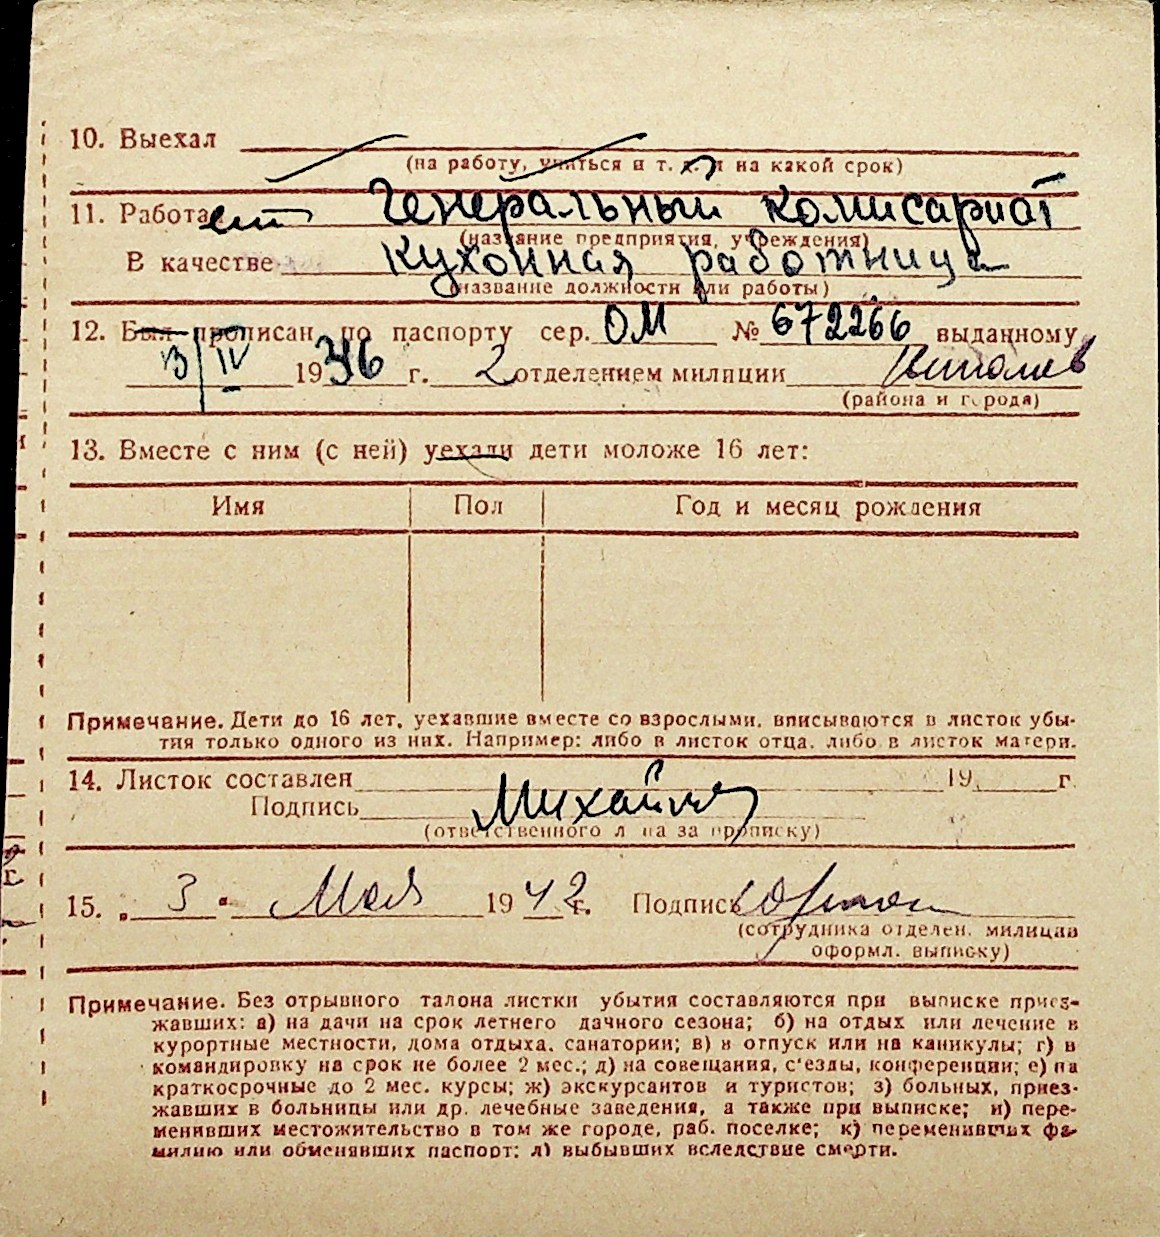 10. Выехал
(на работу, учиться и т. д. и на какой срок)
11. Работает Генеральный комисариат
(название предприятия, учреждения)
В качестве кухонная работница
(название должности или работы)
12. Был прописан по паспорту сер. ОМ № 672266 выданному
13/IV 1936 г. 2 отделением милиции
(района и города)
13. Вместе с ним (с ней) уехали дети моложе 16 лет:
Имя Пол Год и месяц рождения
Примечание. Дети до 16 лет, уехавшие вместе со взрослыми, вписываются в листок убы-
тия только одного из них. Например: либо в листок отца, либо в листок матери.
14. Листок составлен 19 г.
Подпись
(ответственного лица за прописку)
15. „ 3 " Мая 1942 г. Подпись
(сотрудника отделен. милиции
оформл. выписку)
Примечание. Без отрывного талона листки убытия составляются при выписке приез-
жавших: а) на дачи на срок летнего дачного сезона; б) на отдых или лечение в
курортные местности, дома отдыха, санатории; в) в отпуск или на каникулы; г) в
командировку на срок не более 2 мес.; д) на совещания, с'езды, конференции; е) на
краткосрочные до 2 мес. курсы; ж) экскурсантов и туристов; з) больных, приез-
жавших в больницы или др. лечебные заведения, а также при выписке; и) пере-
менивших местожительство в том же городе, раб. поселке; к) переменивших фа-
милию или обменявших паспорт; л) выбывших вследствие смерти.